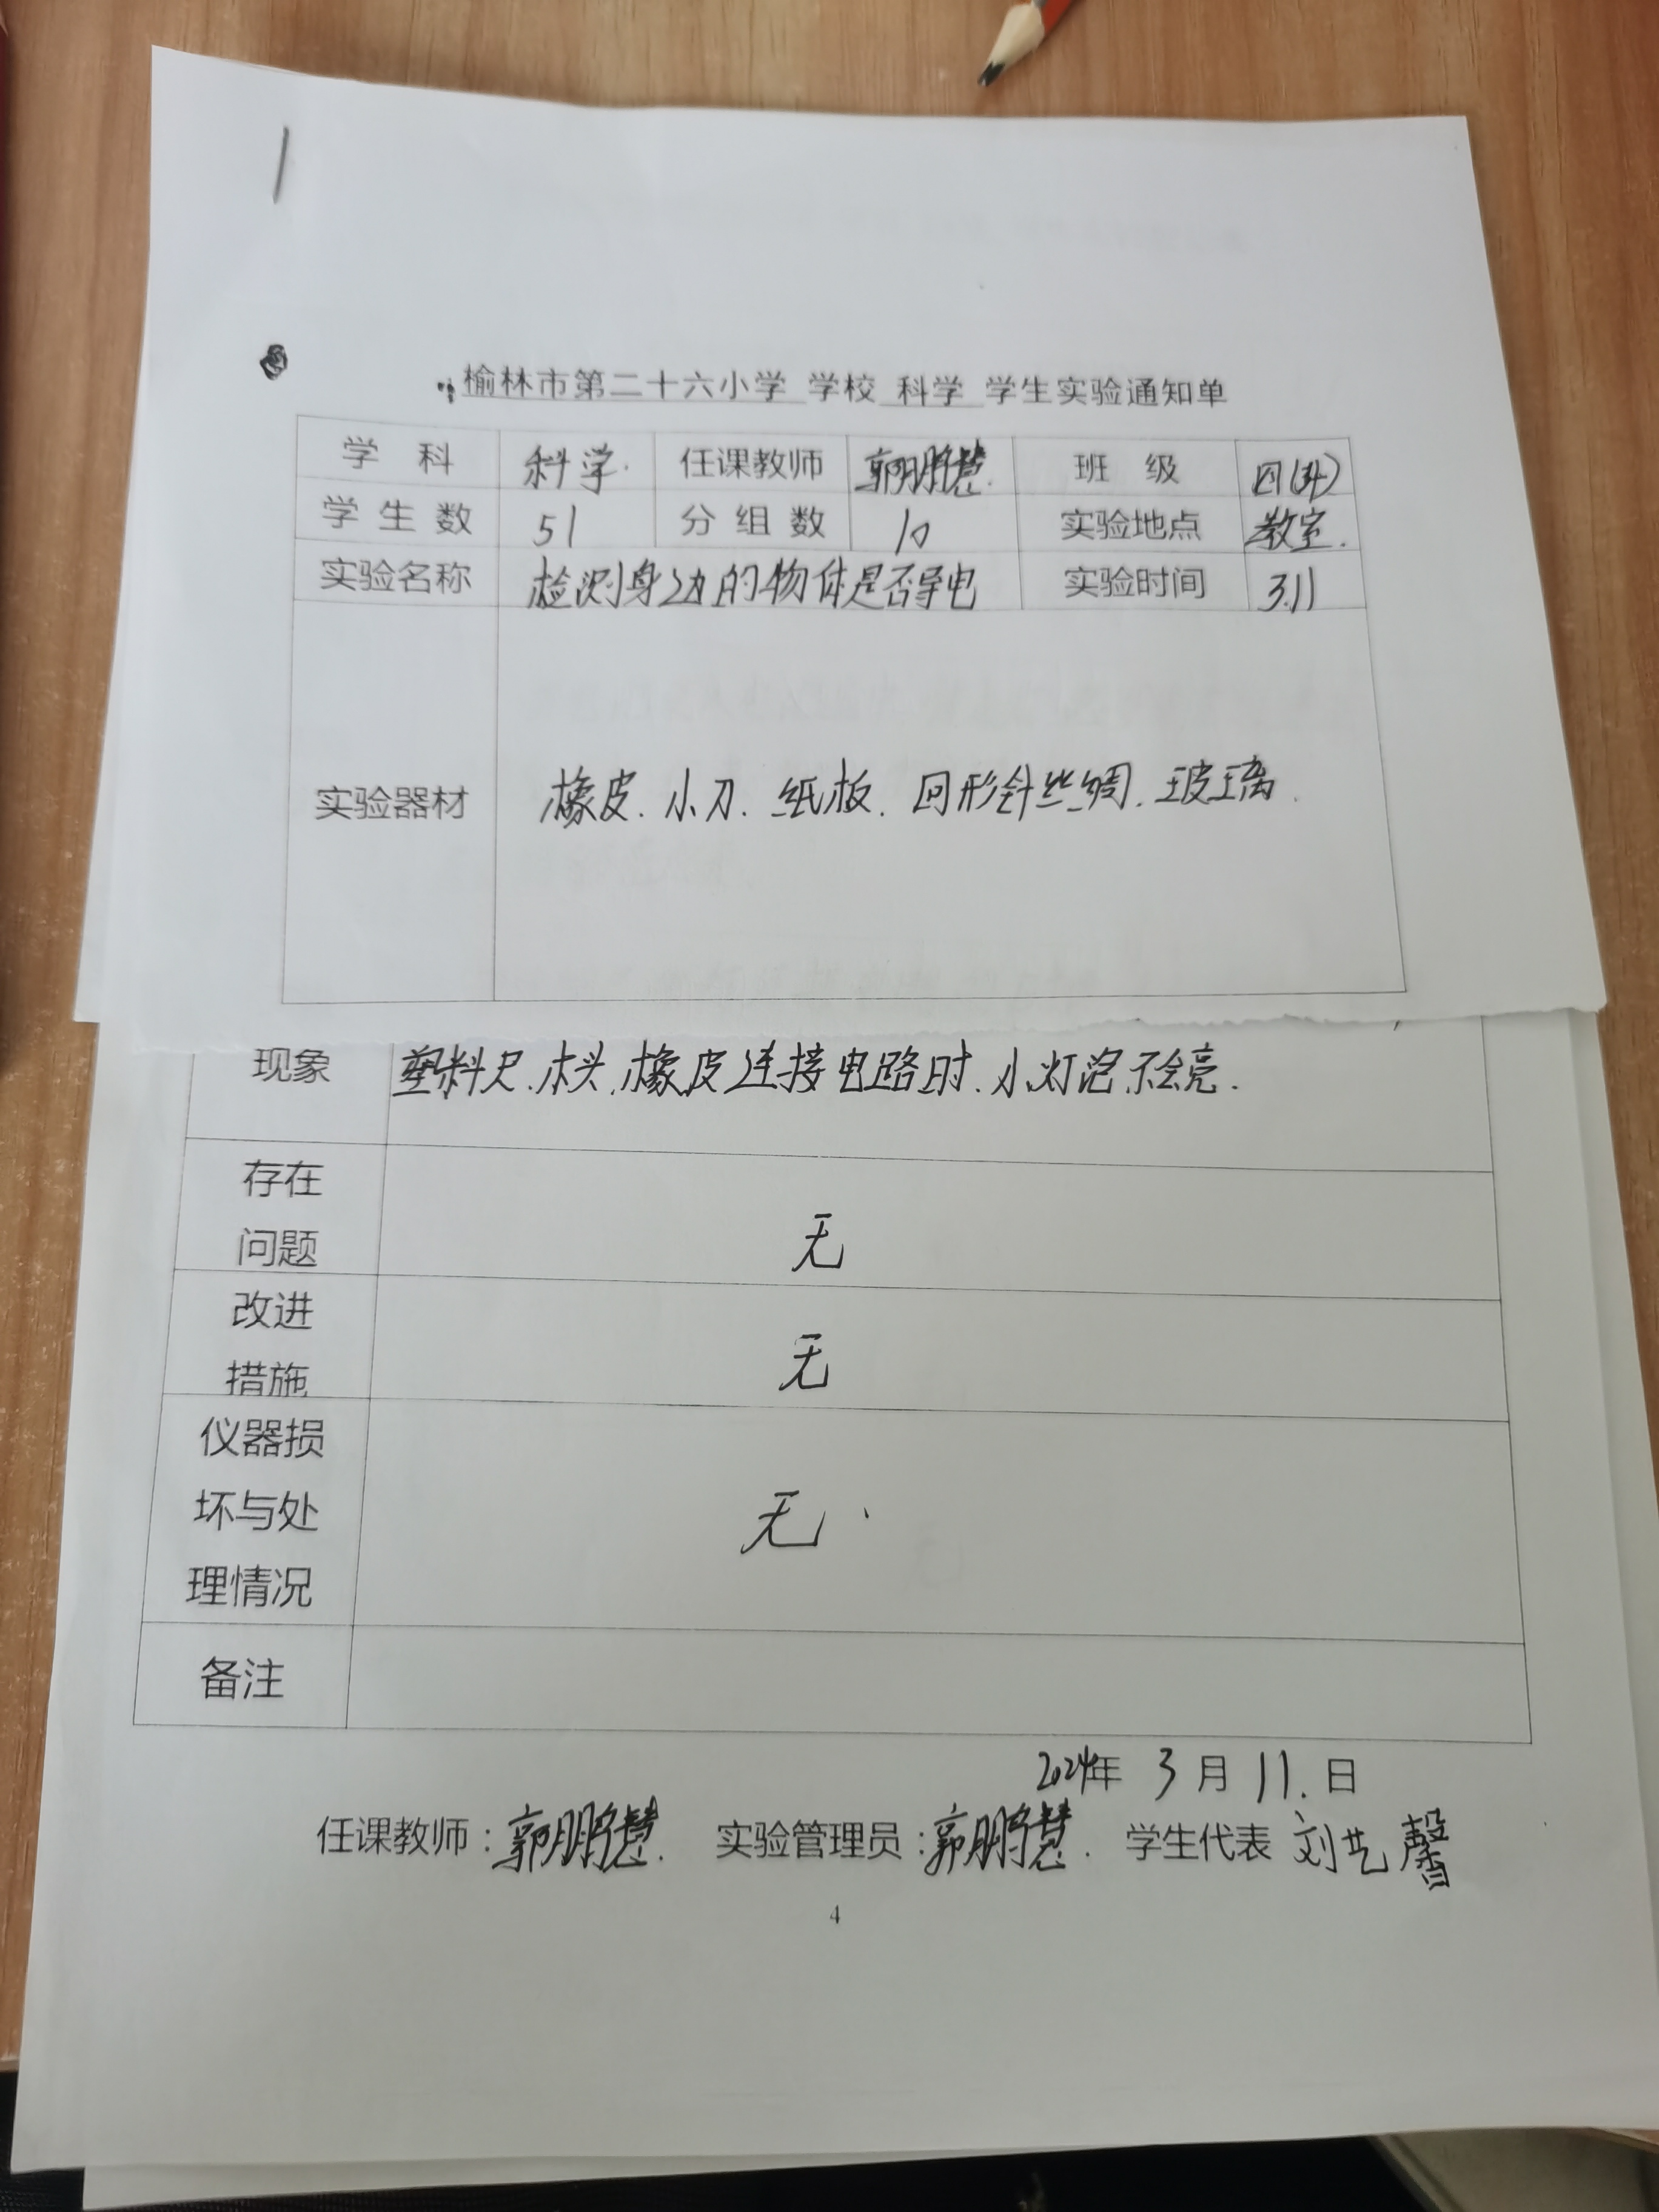 榆林市第二十六小学 学校 科学 学生实验通知单
学 科 科学 任课教师 郭朋慧 班 级
学生数 51 分组数 10 实验地点 教室
实验名称 检测身边的物体是否导电 实验时间 3.11
实验器材 橡皮. 小刀. 纸板. 回形针丝绸. 玻璃.
现象 塑料尺.木头.橡皮连接电路时.小灯泡不会亮.
存在
问题 无
改进
措施 无
仪器损
坏与处 无.
理情况
备注
2024年 3月 11.日
任课教师:郭朋慧. 实验管理员:郭朋慧. 学生代表 刘艺馨
4